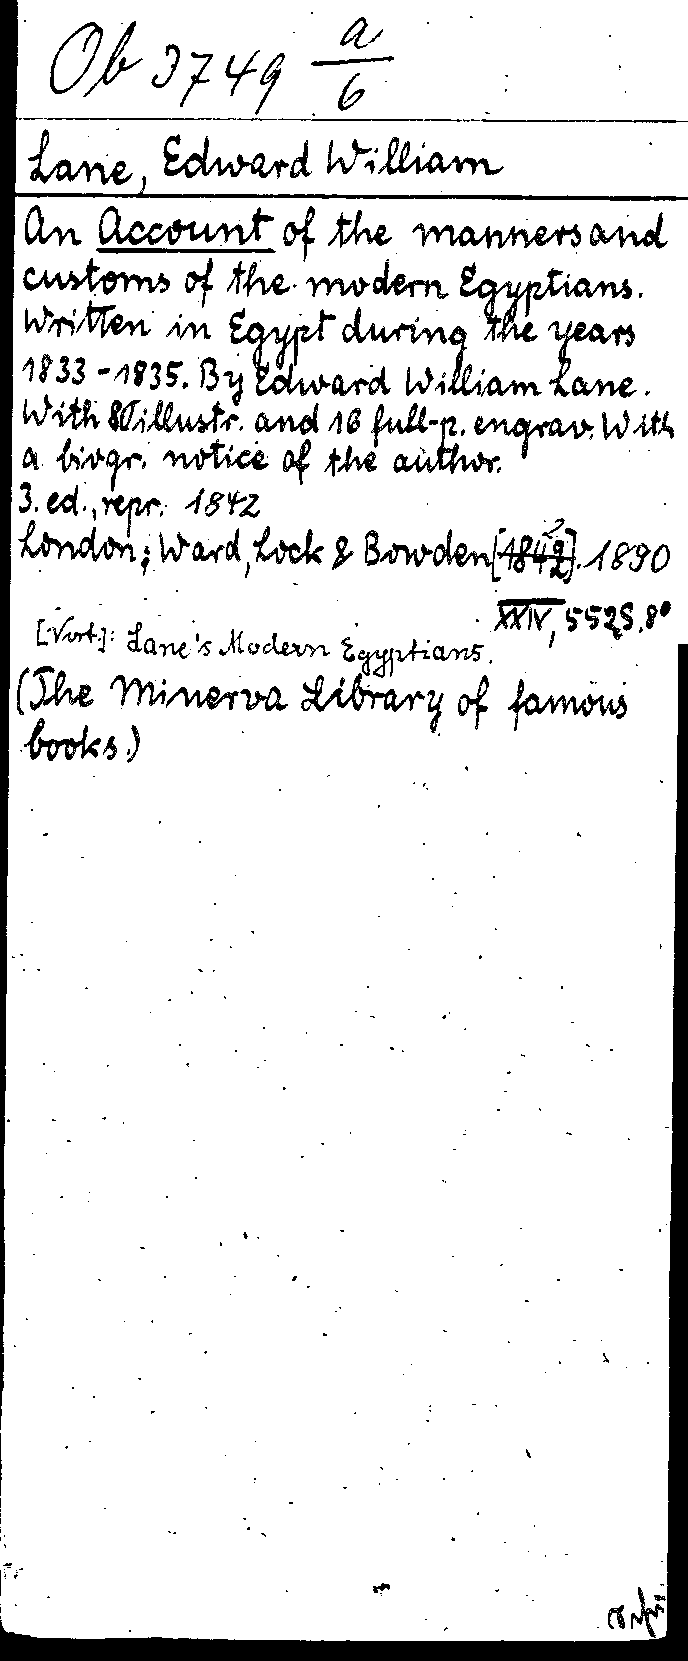 Ob 3749 a/6
Lane, Edward William
An Account of the manners and
customs of the modern Egyptians.
Written in Egypt during the years
1833-1835. By Edward William Lane.
With illustr. and 16 full-p. engrav. With
a biogr. notice of the author.
3. ed., repr. 1842
London: Ward, Lock & Bowden [1842]. 1890
XXIV, 552 S. 8°
[Vort.]: Lane's Modern Egyptians.
(The Minerva Library of famous
books.)